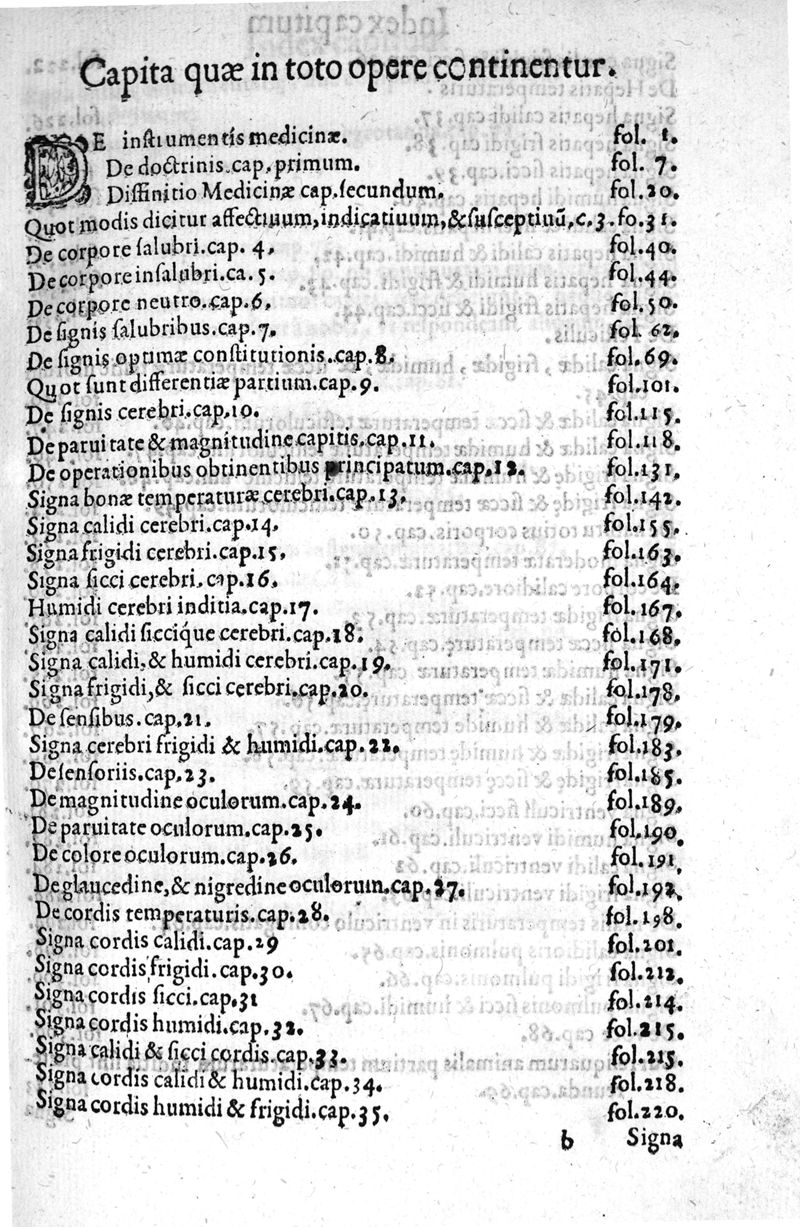 Capita quæ in toto opere continentur.
DE instrumentis medicinæ. fol. 1.
De doctrinis.cap.primum. fol. 7.
Diffinitio Medicinæ cap.secundum. fol.20.
Quot modis dicitur affectiuum,indicatiuum,&susceptiuū,c.3.fo.31.
De corpore salubri.cap. 4. fol.40.
De corpore insalubri.ca. 5. fol.44.
De corpore neutro.cap.6. fol.50.
De signis salubribus.cap.7. fol. 62.
De signis optimæ constitutionis.cap.8. fol.69.
Quot sunt differentiæ partium.cap.9. fol.101.
De signis cerebri.cap.10. fol.115.
De paruitate & magnitudine capitis.cap.11. fol.118.
De operationibus obtinentibus principatum.cap.12. fol.131.
Signa bonæ temperaturæ cerebri.cap.13. fol.142.
Signa calidi cerebri.cap.14. fol.155.
Signa frigidi cerebri.cap.15. fol.163.
Signa sicci cerebri.cap.16. fol.164.
Humidi cerebri inditia.cap.17. fol.167.
Signa calidi siccíque cerebri.cap.18. fol.168.
Signa calidi,& humidi cerebri.cap.19. fol.171.
Signa frigidi,& sicci cerebri.cap.20. fol.178.
De sensibus.cap.21. fol.179.
Signa cerebri frigidi & humidi.cap.22. fol.183.
De sensoriis.cap.23. fol.185.
De magnitudine oculorum.cap.24. fol.189.
De paruitate oculorum.cap.25. fol.190.
De colore oculorum.cap.26. fol.191.
De glaucedine,& nigredine oculorum.cap.27. fol.192.
De cordis temperaturis.cap.28. fol.198.
Signa cordis calidi.cap.29 fol.201.
Signa cordis frigidi.cap.30. fol.212.
Signa cordis sicci.cap.31 fol.214.
Signa cordis humidi.cap.32. fol.215.
Signa calidi & sicci cordis.cap.33. fol.215.
Signa cordis calidi & humidi.cap.34. fol.218.
Signa cordis humidi & frigidi.cap.35. fol.220.
b Signa